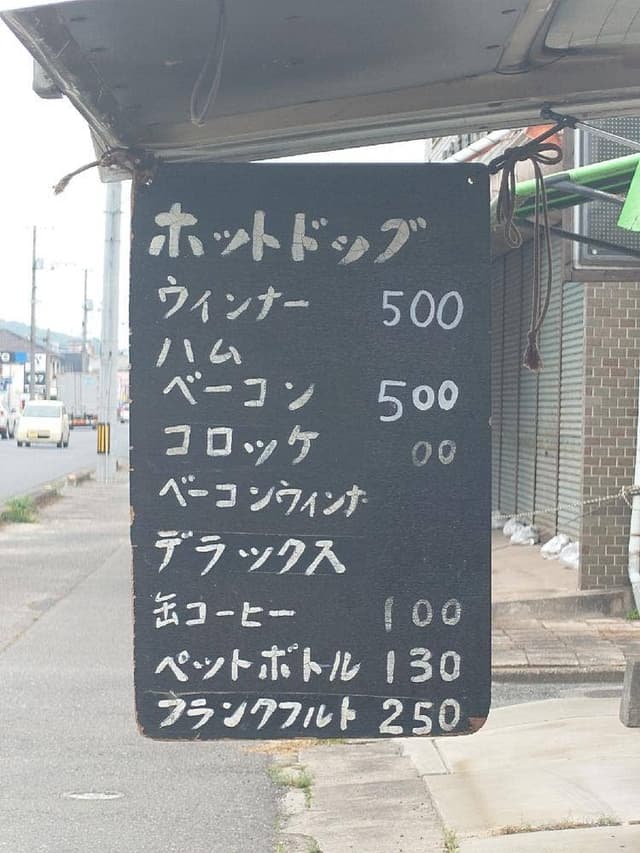 ホットドッグ
ウィンナー 500
ハム
ベーコン 500
コロッケ 00
ベーコンウィンナ
デラックス
缶コーヒー 100
ペットボトル 130
フランクフルト 250